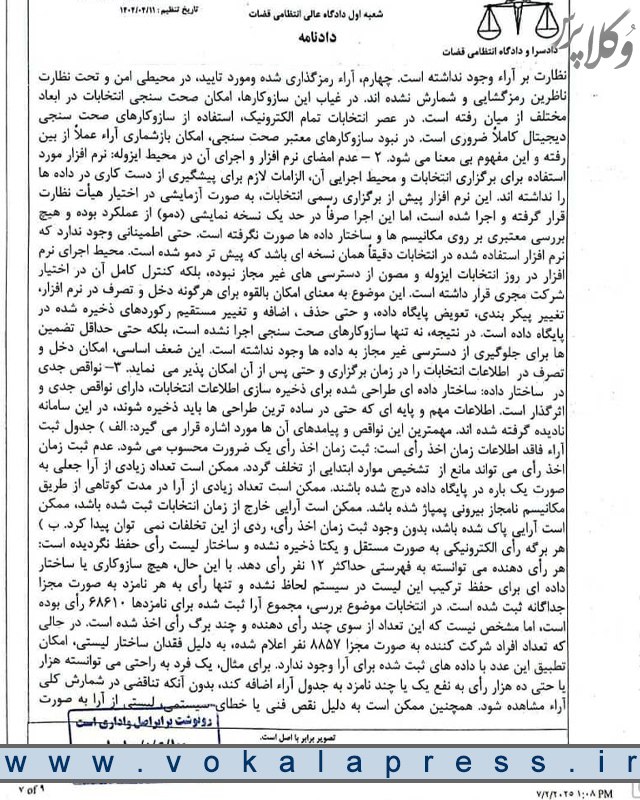 تاریخ تنظیم : ۱۴۰۴/۰۴/۱۱
شعبه اول دادگاه عالی انتظامی قضات
دادنامه
دادسرا و دادگاه انتظامی قضات
وکلاپرس
نظارت بر آراء وجود نداشته است. چهارم، آراء رمزگذاری شده ومورد تایید، در محیطی امن و تحت نظارت
ناظرین رمزگشایی و شمارش نشده اند. در غیاب این سازوکارها، امکان صحت سنجی انتخابات در ابعاد
مختلف از میان رفته است. در عصر انتخابات تمام الکترونیک، استفاده از سازوکارهای صحت سنجی
دیجیتال کاملاً ضروری است. در نبود سازوکارهای معتبر صحت سنجی، امکان بازشماری آراء عملاً از بین
رفته و این مفهوم بی معنا می شود. ۲ - عدم امضای نرم افزار و اجرای آن در محیط ایزوله: نرم افزار مورد
استفاده برای برگزاری انتخابات و محیط اجرایی آن، الزامات لازم برای پیشگیری از دست کاری در داده ها
را نداشته اند. این نرم افزار پیش از برگزاری رسمی انتخابات، به صورت آزمایشی در اختیار هیأت نظارت
قرار گرفته و اجرا شده است، اما این اجرا صرفاً در حد یک نسخه نمایشی (دمو) از عملکرد بوده و هیچ
بررسی معتبری بر روی مکانیسم ها و ساختار داده ها صورت نگرفته است. حتی اطمینانی وجود ندارد که
نرم افزار استفاده شده در انتخابات دقیقاً همان نسخه ای باشد که پیش تر دمو شده است. محیط اجرای نرم
افزار در روز انتخابات ایزوله و مصون از دسترسی های غیر مجاز نبوده، بلکه کنترل کامل آن در اختیار
شرکت مجری قرار داشته است. این موضوع به معنای امکان بالقوه برای هرگونه دخل و تصرف در نرم افزار،
تغییر پیکر بندی، تعویض پایگاه داده، و حتی حذف ، اضافه و تغییر مستقیم رکوردهای ذخیره شده در
پایگاه داده است. در نتیجه، نه تنها سازوکارهای صحت سنجی اجرا نشده است، بلکه حتی حداقل تضمین
ها برای جلوگیری از دسترسی غیر مجاز به داده ها وجود نداشته است. این ضعف اساسی، امکان دخل و
تصرف در اطلاعات انتخابات را در زمان برگزاری و حتی پس از آن امکان پذیر می نماید. ۳- نواقص جدی
در ساختار داده: ساختار داده ای طراحی شده برای ذخیره سازی اطلاعات انتخابات، دارای نواقص جدی و
اثرگذار است. اطلاعات مهم و پایه ای که حتی در ساده ترین طراحی ها باید ذخیره شوند، در این سامانه
نادیده گرفته شده اند. مهمترین این نواقص و پیامدهای آن ها مورد اشاره قرار می گیرد: الف ) جدول ثبت
آراء فاقد اطلاعات زمان اخذ رأی است: ثبت زمان اخذ رأی یک ضرورت محسوب می شود. عدم ثبت زمان
اخذ رأی می تواند مانع از تشخیص موارد ابتدایی از تخلف گردد. ممکن است تعداد زیادی از آرا جعلی به
صورت یک باره در پایگاه داده درج شده باشند. ممکن است تعداد زیادی از آرا در مدت کوتاهی از طریق
مکانیسم نامجاز بیرونی پمپاژ شده باشد. ممکن است آرایی خارج از زمان انتخابات ثبت شده باشد، ممکن
است آرایی پاک شده باشد، بدون وجود ثبت زمان اخذ رأی، ردی از این تخلفات نمی توان پیدا کرد. ب )
هر برگه رأی الکترونیکی به صورت مستقل و یکتا ذخیره نشده و ساختار لیست رأی حفظ نگردیده است:
هر رأی دهنده می توانسته به فهرستی حداکثر ۱۲ نفر رأی دهد. با این حال، هیچ سازوکاری یا ساختار
داده ای برای حفظ ترکیب این لیست در سیستم لحاظ نشده و تنها رأی به هر نامزد به صورت مجزا
جداگانه ثبت شده است. در انتخابات موضوع بررسی، مجموع آرا ثبت شده برای نامزدها ۶۸۶۱۰ رأی بوده
است، اما مشخص نیست که این تعداد از سوی چند رأی دهنده و چند برگ رأی اخذ شده است. در حالی
که تعداد افراد شرکت کننده به صورت مجزا ۸۸۵۷ نفر اعلام شده، به دلیل فقدان ساختار لیستی، امکان
تطبیق این عدد با داده های ثبت شده برای آرا وجود ندارد. برای مثال، یک فرد به راحتی می توانسته هزار
یا حتی ده هزار رأی به نفع یک یا چند نامزد به جدول آراء اضافه کند، بدون آنکه تناقضی در شمارش کلی
آراء مشاهده شود. همچنین ممکن است به دلیل نقص فنی یا خطای سیستمی لیستی از آرا به صورت
رونوشت برابر اصل و اداری است
تصویر برابر با اصل است.
www.vokalapress.ir
۷ of ۹
۷/۲/۲۰۲۵ ۱:۰۸ PM